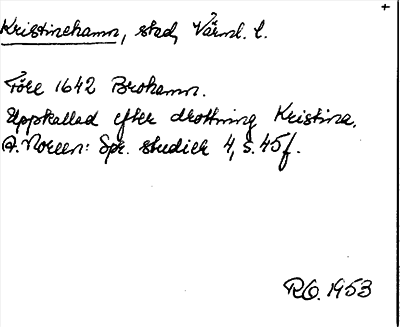 Kristinehamn, stad, Värml. l.
Före 1642 Brohamn.
Uppkallad efter drottning Kristina.
A. Noreen: Spr. studier 4, s. 45f.
R.O. 1953